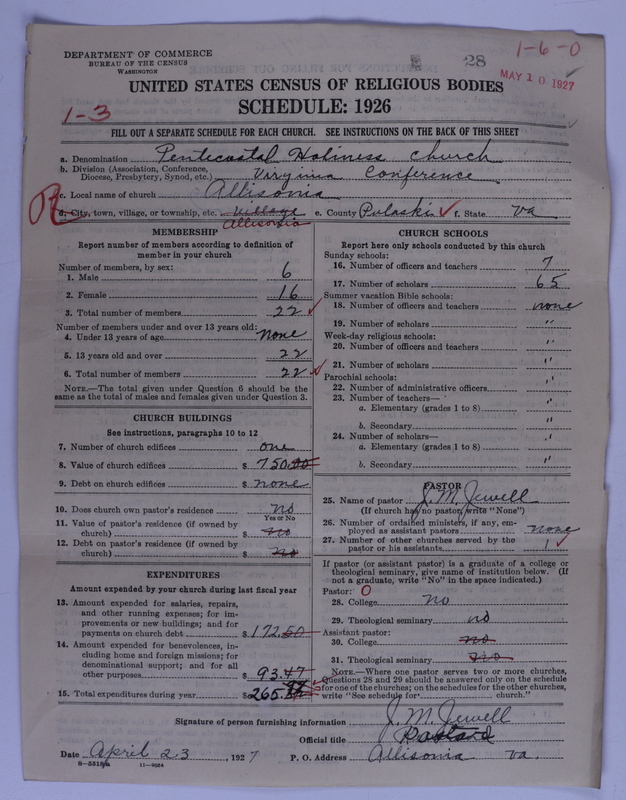 DEPARTMENT OF COMMERCE
BUREAU OF THE CENSUS
WASHINGTON
28
1-6-0
MAY 10 1927
UNITED STATES CENSUS OF RELIGIOUS BODIES
SCHEDULE: 1926
1-3
FILL OUT A SEPARATE SCHEDULE FOR EACH CHURCH. SEE INSTRUCTIONS ON THE BACK OF THIS SHEET
a. Denomination Pentecostal Holiness church
b. Division (Association, Conference, Diocese, Presbytery, Synod, etc.) Virginia Conference
c. Local name of church Allisonia
d. City, town, village, or township, etc. village Allisonia e. County Pulaski f. State Va
MEMBERSHIP
Report number of members according to definition of member in your church
Number of members, by sex:
1. Male 6
2. Female 16
3. Total number of members 22
Number of members under and over 13 years old:
4. Under 13 years of age none
5. 13 years old and over 22
6. Total number of members 22
NOTE.—The total given under Question 6 should be the same as the total of males and females given under Question 3.
CHURCH BUILDINGS
See instructions, paragraphs 10 to 12
7. Number of church edifices one
8. Value of church edifices $ 750.00
9. Debt on church edifices $ none
10. Does church own pastor's residence no
Yes or No
11. Value of pastor's residence (if owned by church) $ no
12. Debt on pastor's residence (if owned by church) $ no
EXPENDITURES
Amount expended by your church during last fiscal year
13. Amount expended for salaries, repairs, and other running expenses; for improvements or new buildings; and for payments on church debt $ 172.50
14. Amount expended for benevolences, including home and foreign missions; for denominational support; and for all other purposes $ 93.47
15. Total expenditures during year $ 265.97
CHURCH SCHOOLS
Report here only schools conducted by this church
Sunday schools:
16. Number of officers and teachers 7
17. Number of scholars 65
Summer vacation Bible schools:
18. Number of officers and teachers none
19. Number of scholars "
Week-day religious schools:
20. Number of officers and teachers "
21. Number of scholars "
Parochial schools:
22. Number of administrative officers "
23. Number of teachers—
a. Elementary (grades 1 to 8) "
b. Secondary "
24. Number of scholars—
a. Elementary (grades 1 to 8) "
b. Secondary "
PASTOR
25. Name of pastor J. M. Jewell
(If church has no pastor, write "None")
26. Number of ordained ministers, if any, employed as assistant pastors none
27. Number of other churches served by the pastor or his assistants 1
If pastor (or assistant pastor) is a graduate of a college or theological seminary, give name of institution below. (If not a graduate, write "No" in the space indicated.)
Pastor: 0
28. College no
29. Theological seminary no
Assistant pastor:
30. College no
31. Theological seminary no
NOTE.—Where one pastor serves two or more churches, Questions 28 and 29 should be answered only on the schedule for one of the churches; on the schedules for the other churches, write "See schedule for church."
Signature of person furnishing information J. M. Jewell
Official title
Date April 23, 1927 P. O. Address Allisonia Va.
11—9024